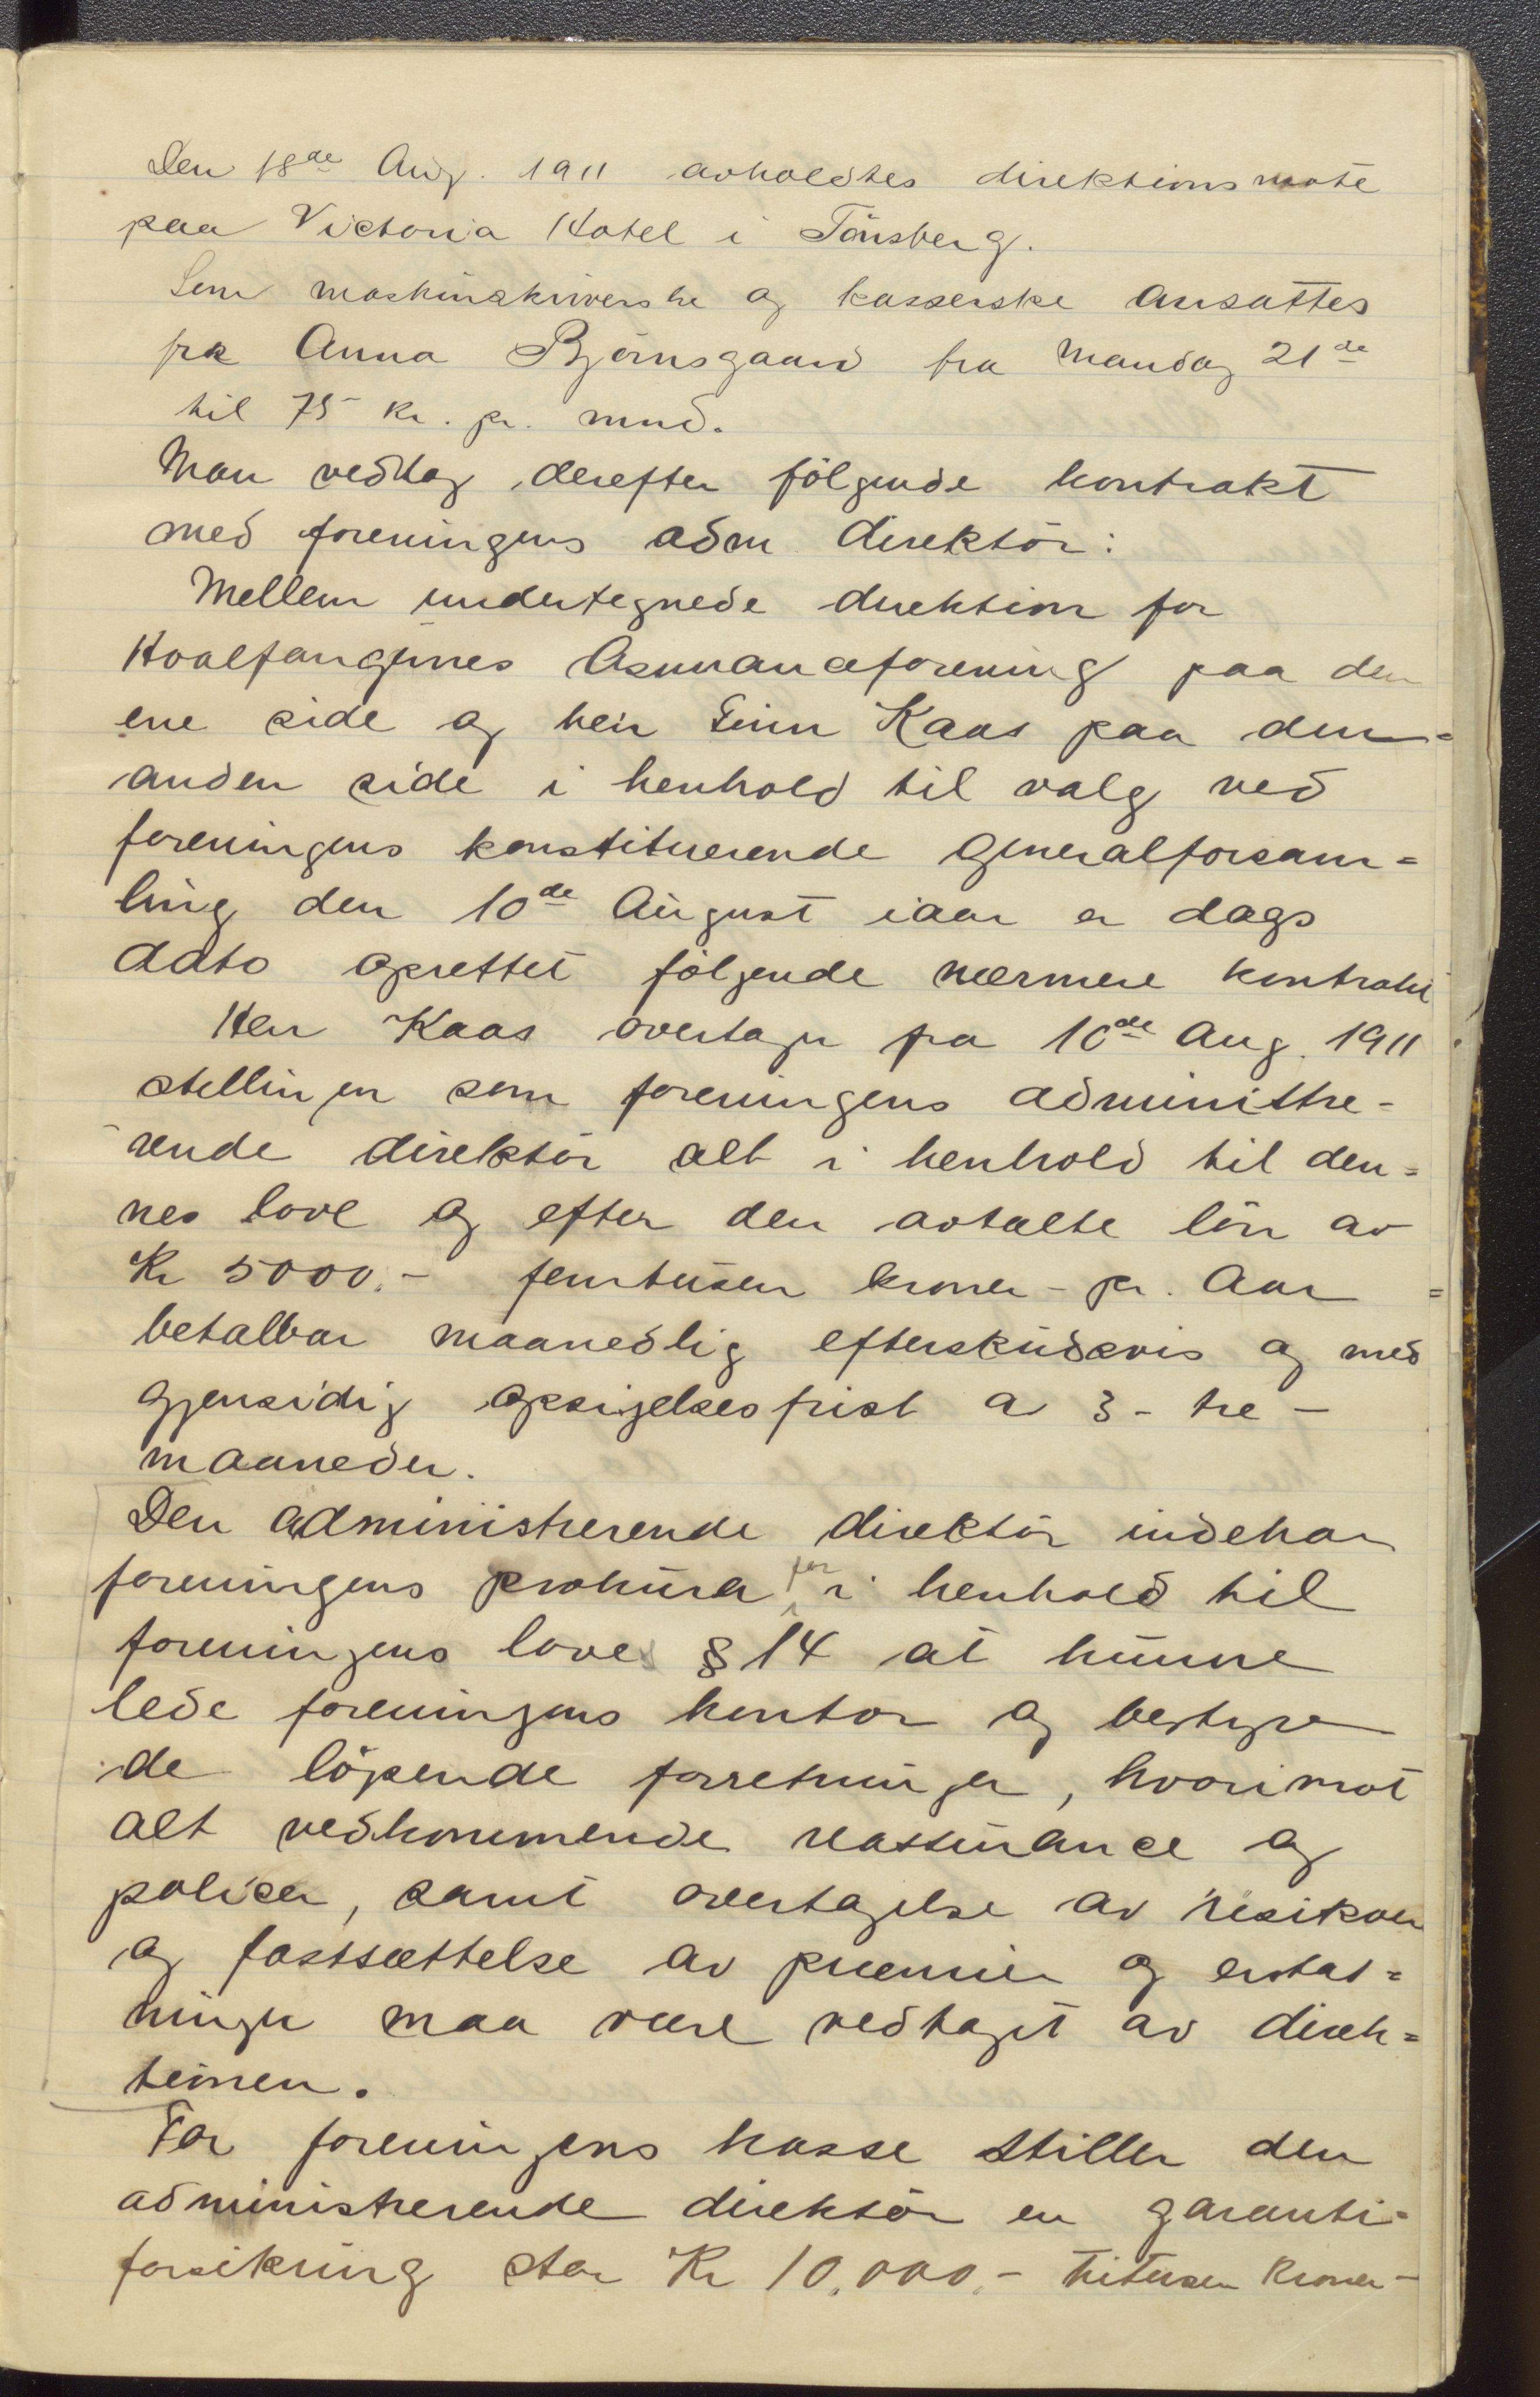 Den 18de Aug. 1911 avholdtes direktionsmøte
paa Victoria Hotel i Tönsberg.
Som maskinskriverske og kasserske ansattes
frk Anna Bjørnsgaard fra Mandag 21de
til 75 kr. pr. mnd.
Man vedtog derefter følgende kontrakt
med foreningens adm direktör:
Mellem undertegnede direktion for
Hvalfangernes Assuranceforening paa den
ene side og herr Finn Kaas paa den=
anden side i henhold til valg ved
foreningens konstituerende generalforsam=
ling den 10de August iaar er dags
dato oprettet følgende nærmere kontrakt
Herr Kaas overtager fra 10de Aug. 1911
stillingen som foreningens administre-
rende direktör alt i henhold til den=
nes love og efter den avtalte lön av
Kr 5000.- femtusen kroner - pr. Aar =
betalbar maanedlig efterskudsvis og med
gjensidig opsigelsesfrist av 3 - tre -
maaneder.
Den administrerende direktör indehar
foreningens prokura for i henhold til
foreningens love § 14 at kunne
lede foreningens kontor og bestyre
de löpende forretninger, hvorimot
alt vedkommende reassurance og
policer, samt overtagelse av risikoer
og fastsættelse av præmier og erstat=
ninger maa være vedtaget av direk=
tionen.
For foreningens kasse stiller den
administrerende direktör en garanti-
forsikring stor Kr 10,000.- titusen kroner -